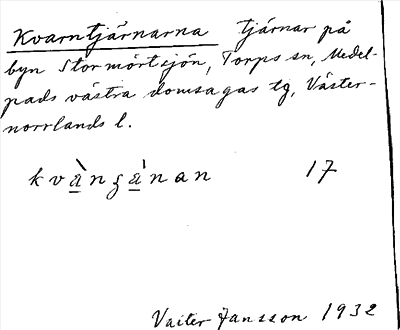 Kvarntjärnarna tjärnar på
byn Stormörtsjön, Torps sn, Medel-
pads västra domsagas tg, Väster-
norrlands l.
kvànʒánan 17
Valter Jansson 1932